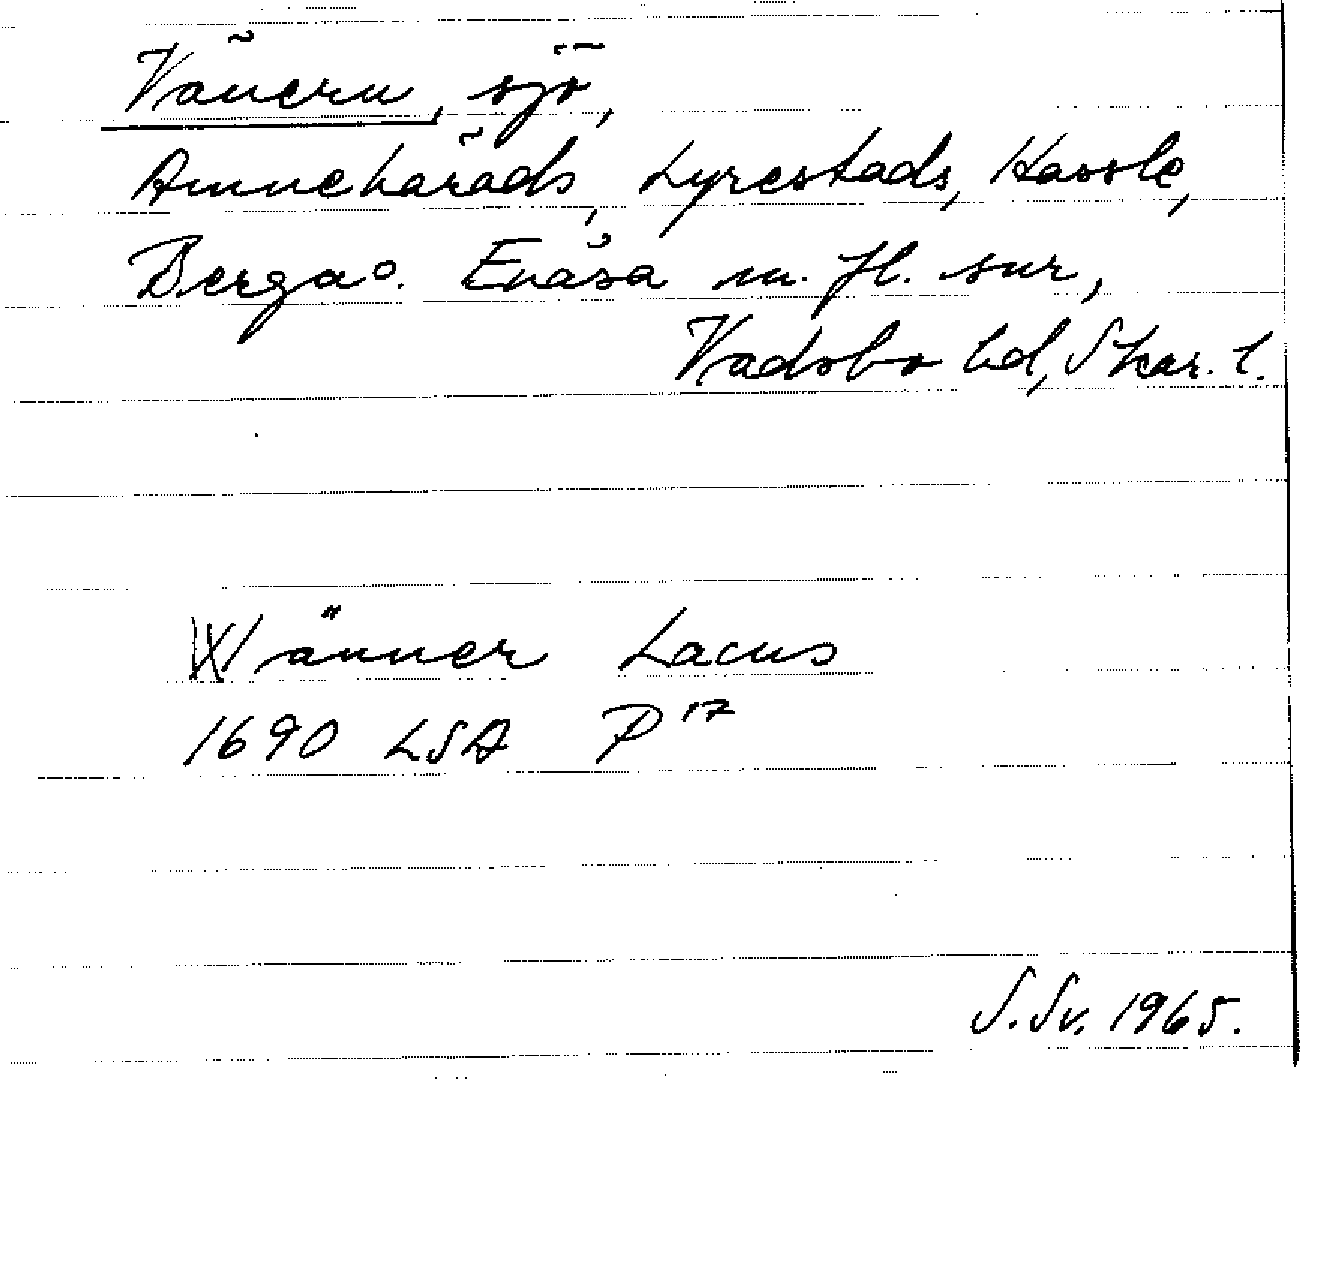 Vänern, sjö,
Amnehärads, Lyrestads, Hassle,
Berga o. Enåsa m. fl. snr,
Vadsbo hd, Skar. l.
Wänner Lacus
1690 LSA P17
S.Sv. 1965.